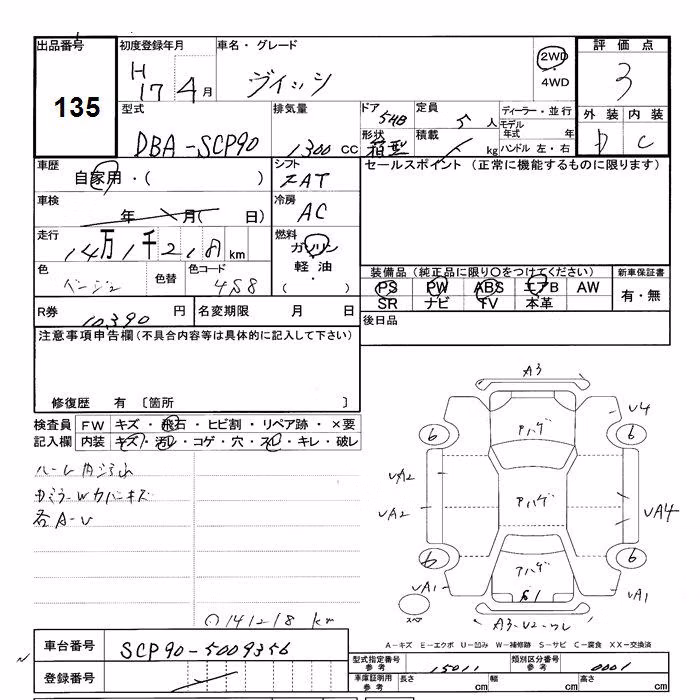 出品番号 初度登録年月 車名・グレード 評価点
135
H 17年 4月 ヴィッツ 2WD・4WD 3
型式 排気量 ドア 5HB 定員 5人 ディーラー・並行 外装 内装
DBA-SCP90 1300 cc 形状 箱型 積載 kg モデル年式 年 ハンドル 左・右 D C
車歴 自家用・( ) シフト FAT セールスポイント (正常に機能するものに限ります)
車検 年 月( 日) 冷房 AC
走行 14万1千218 km 燃料 ガソリン・軽油・( )
色 ベージュ 色替 色コード 4S8
装備品 (純正品に限り〇をつけてください) 新車保証書
PS PW ABS エアB AW 有・無
SR ナビ TV 本革
R券 10,390 円 名変期限 月 日 後日品
注意事項申告欄 (不具合内容等は具体的に記入して下さい)
修復歴 有 〔箇所 〕
検査員記入欄 FW キズ・飛石・ヒビ割・リペア跡・×要
内装 キズ・汚レ・コゲ・穴・スレ・キレ・破レ
各A-U
141218 km
A3
U4
6 6
アハゲ
UA2
アハゲ
UA2 UA4
6 6
アハゲ
UA1 UA1
S1
スペア
A-キズ E-エクボ U-凹み W-補修跡 S-サビ C-腐食 XX-交換済
車台番号 SCP90-5009356
登録番号
型式指定番号 参考 15011 類別区分番号 参考 0001
車庫証明用 参考 長さ cm 幅 cm 高さ cm